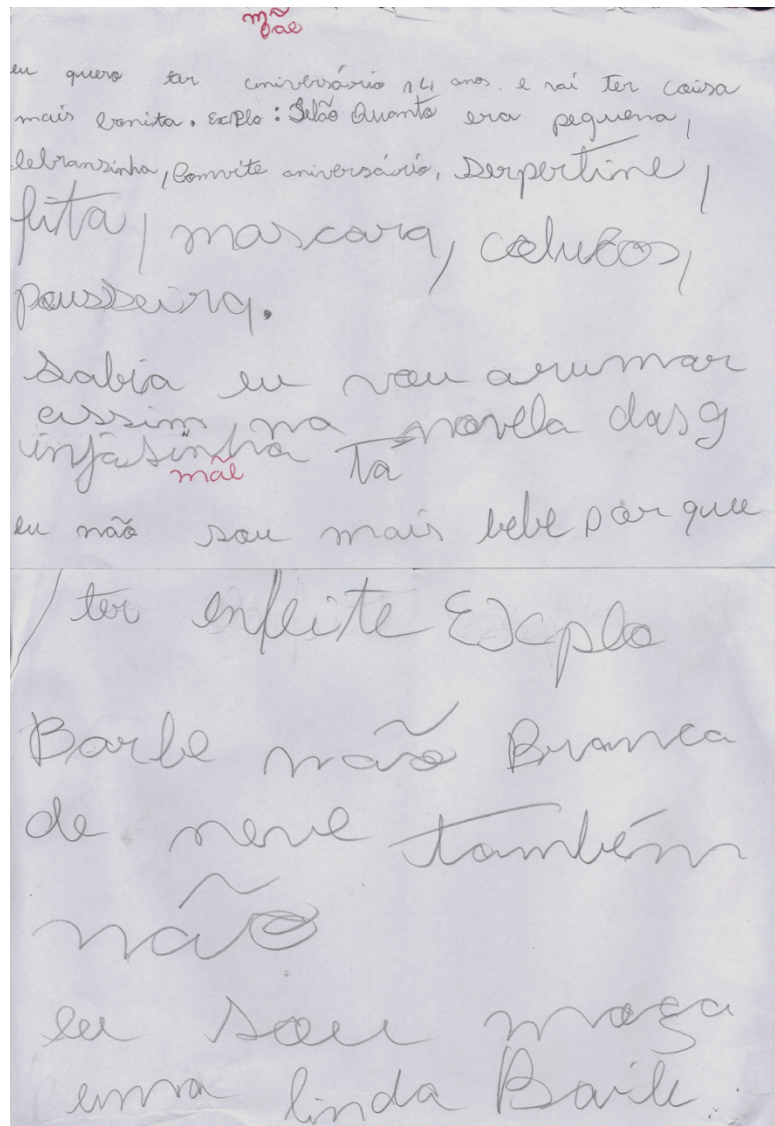 mãe
pae
eu quero ter aniversário 14 anos. e vai ter coisa
mais bonita. ExPlo: Quanto era pequena,
lebransinha, Comvite aniversário, serpertine,
fita, mascara,
pousseira.
Sabia eu vou arumar
assim na novela das 9
tá
mãe
eu não sou mais bebe por que
ter enfeite Explo
Barbe não Branca
de neve também
não
eu sou moça
uma linda